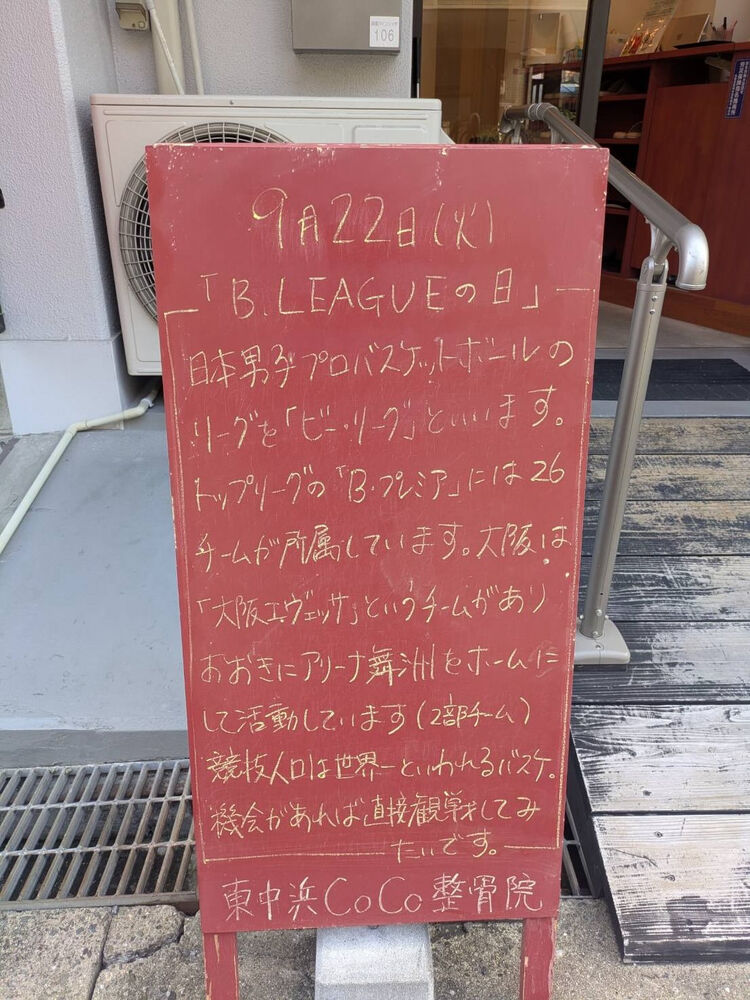 106
9月22日(火)
「B.LEAGUEの日」
日本男子プロバスケットボールの
リーグを「ビー・リーグ」といいます。
トップリーグの「B.プレミア」には26
チームが所属しています。大阪は
「大阪エヴェッサ」というチームがあり
おおきにアリーナ舞洲をホームに
して活動しています(2部チーム)
競技人口は世界一といわれるバスケ。
機会があれば直接観戦してみ
たいです。
東中浜CoCo整骨院